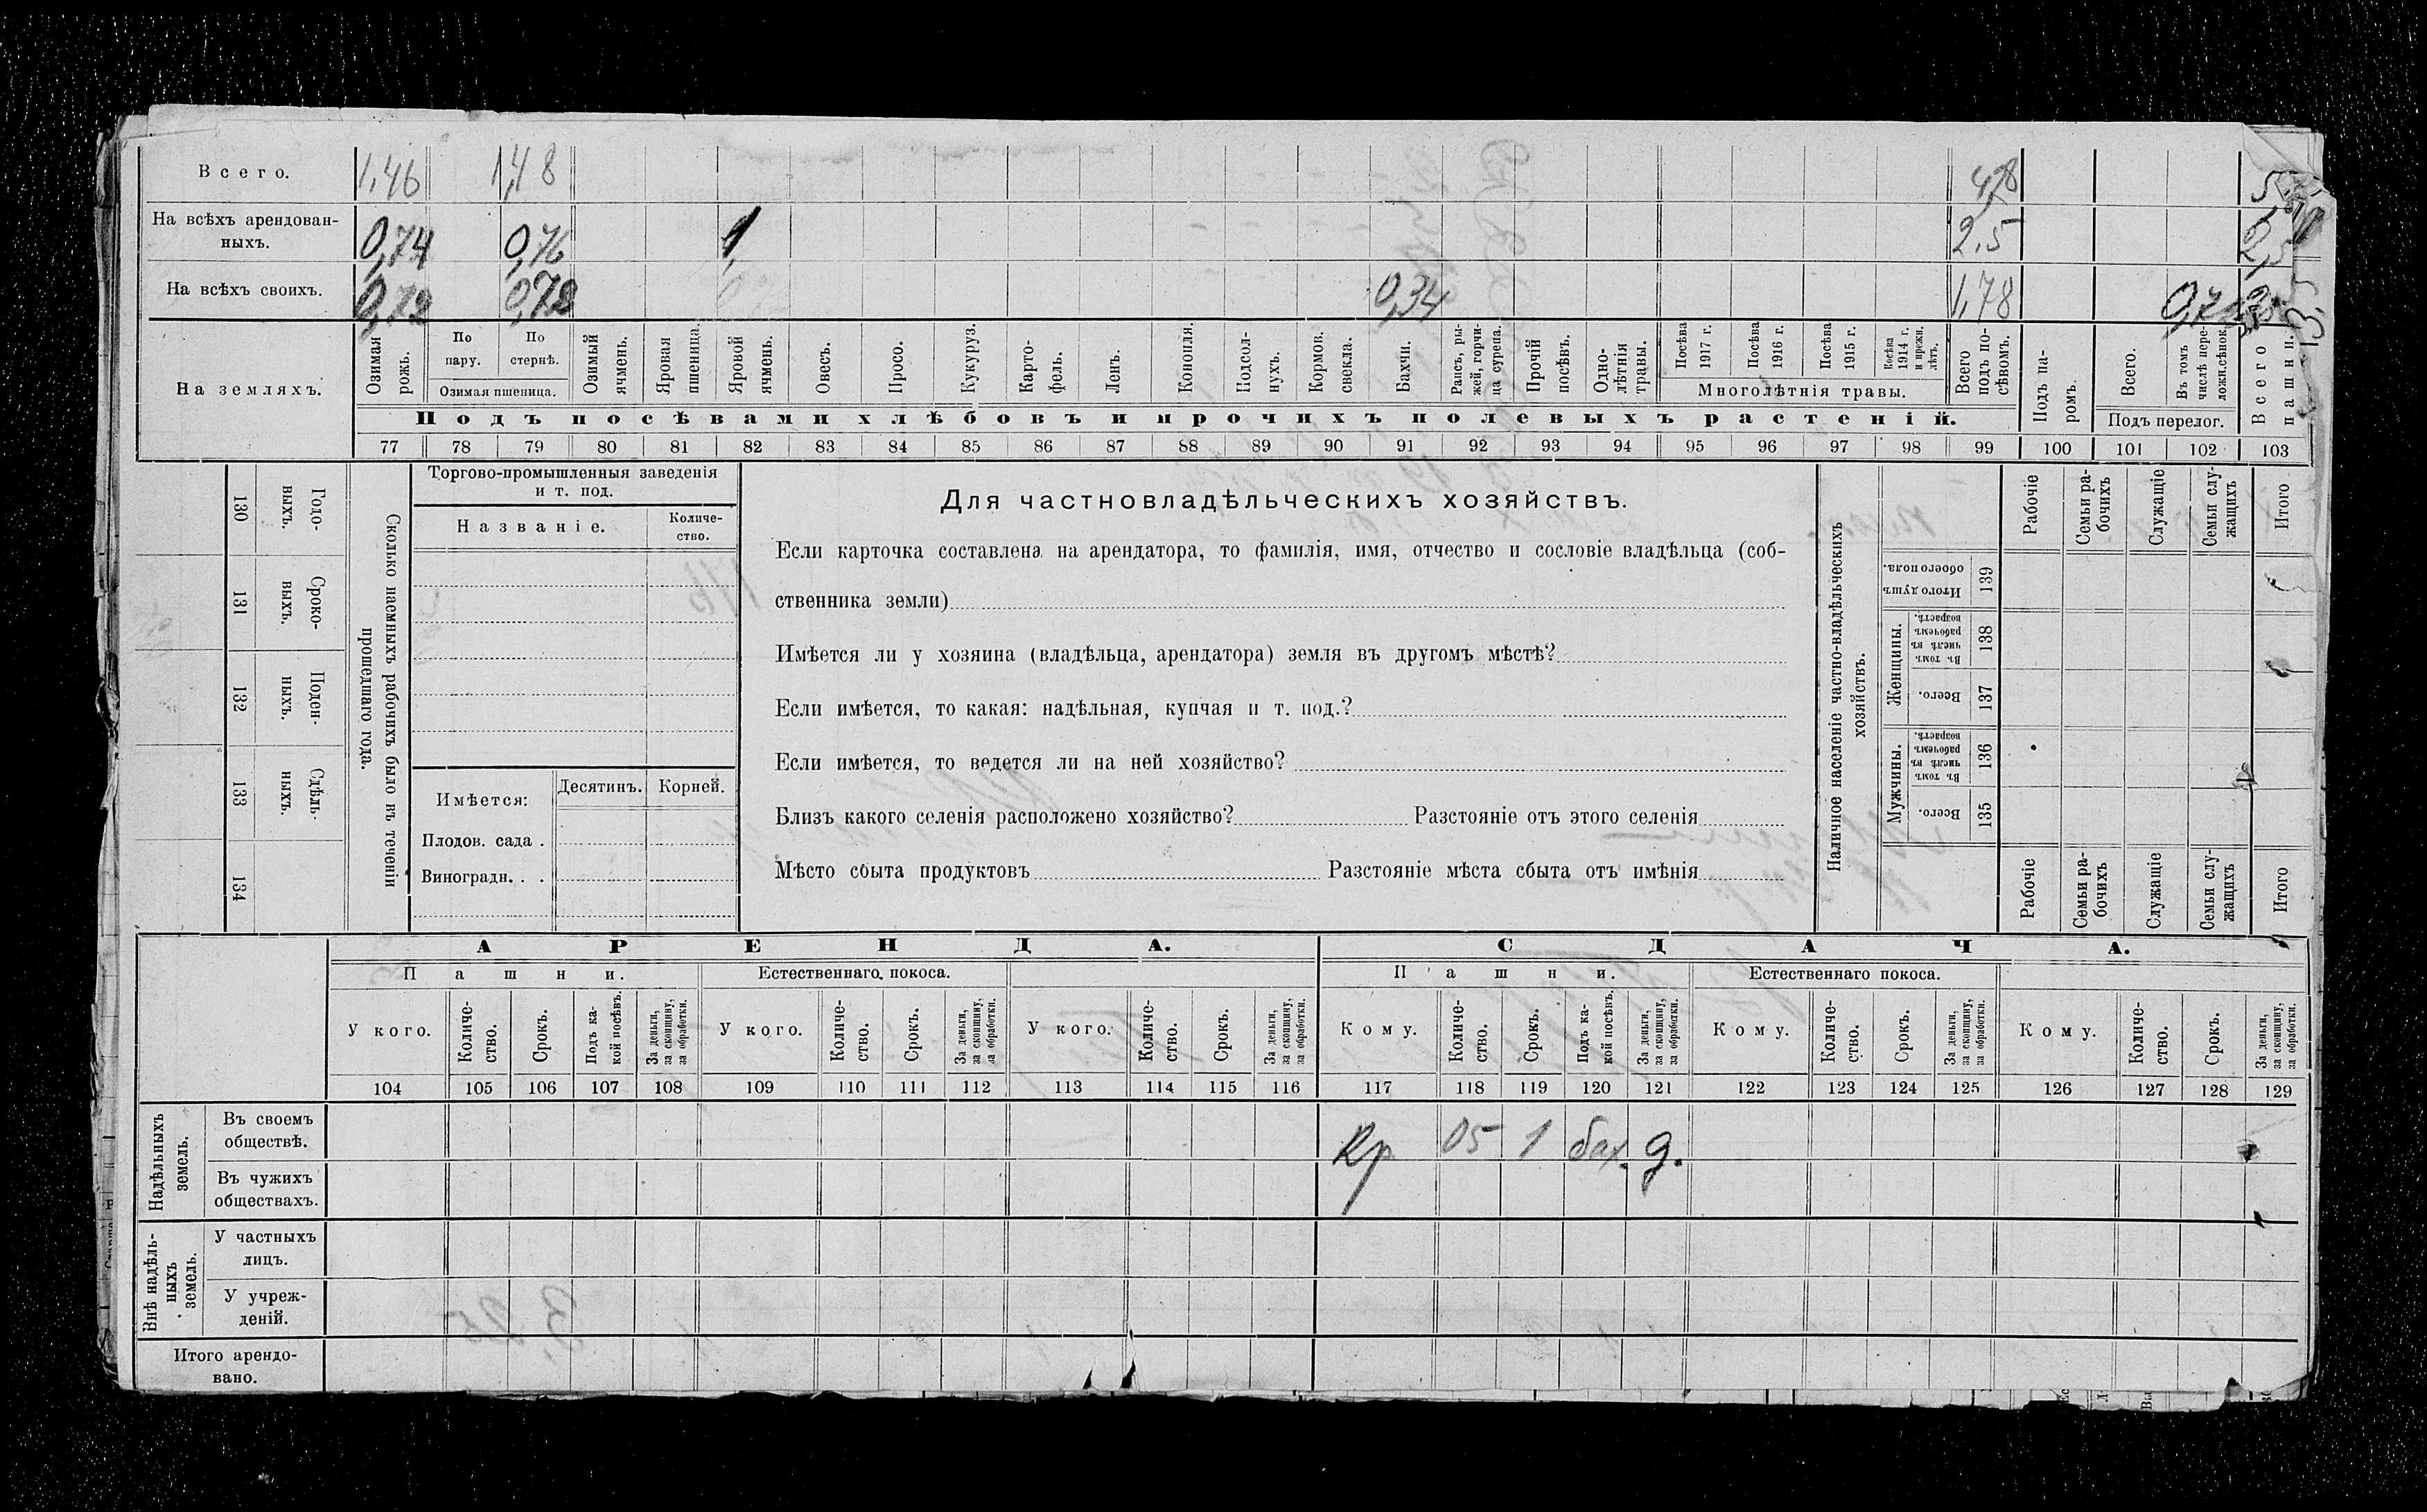 Всего. 1,46 1,48 4,78
На всѣхъ арендован-
ныхъ. 0,74 0,76 1, 2.5 2,5
На всѣхъ своихъ. 0,72 0,72 0,34 1,78
На земляхъ.
Озимая рожь.
По пару.
По стернѣ.
Озимая пшеница.
Озимый ячмень.
Яровая пшеница.
Яровой ячмень.
Овесъ.
Просо.
Кукуруз.
Карто-
фель.
Ленъ.
Конопля.
Подсол-
нухъ.
Кормов.
свекла.
Бахчи.
Рапсъ, ры-
жей, горчи-
ца сурепа.
Прочій
посѣвъ.
Одно-
лѣтнія
травы.
Посѣва
1917 г.
Посѣва
1916 г.
Посѣва
1915 г.
Посѣва
1914 г.
и прежн.
лѣтъ.
Многолѣтнія травы.
Всего
подъ по-
сѣвомъ.
Подъ па-
ромъ.
Всего.
Въ томъ
числѣ пере-
ложн.сѣнок.
Подъ перелог.
Всего
пашни.
Подъ посѣвами хлѣбовъ и прочихъ полевыхъ растеній.
77 78 79 80 81 82 83 84 85 86 87 88 89 90 91 92 93 94 95 96 97 98 99 100 101 102 103
Годо-
выхъ.
130
Сроко-
выхъ.
131
Поден-
ныхъ.
132
Сдѣль-
ныхъ.
133
134
Сколько наемныхъ рабочихъ было въ теченіи
прошедшаго года.
Торгово-промышленныя заведенія
и т. под.
Названіе.
Количе-
ство.
Имѣется:
Десятинъ.
Корней.
Плодов. сада .
Виноградн. . .
Для частновладѣльческихъ хозяйствъ.
Если карточка составлена на арендатора, то фамилія, имя, отчество и сословіе владѣльца (соб-
ственника земли)
Имѣется ли у хозяина (владѣльца, арендатора) земля въ другомъ мѣстѣ?
Если имѣется, то какая: надѣльная, купчая и т. под.?
Если имѣется, то ведется ли на ней хозяйство?
Близъ какого селенія расположено хозяйство? Разстояніе отъ этого селенія
Мѣсто сбыта продуктовъ Разстояніе мѣста сбыта отъ имѣнія
Наличное населеніе частно-владѣльческихъ
хозяйствъ.
Рабочіе
Семьи ра-
бочихъ
Служащіе
Семьи слу-
жащихъ
Итого
Итого душъ
обоего пола.
139
Женщины.
Въ томъ
числѣ въ
рабочемъ
возрастѣ.
138
Всего.
137
Мужчины.
Въ томъ
числѣ въ
рабочемъ
возрастѣ.
136
Всего.
135
Рабочіе
Семьи ра-
бочихъ
Служащіе
Семьи слу-
жащихъ
Итого
АРЕНДА. СДАЧА.
Пашни. Естественнаго покоса. Пашни. Естественнаго покоса.
У кого.
Количе-
ство.
Срокъ.
Подъ ка-
кой посѣвъ.
За деньги,
за скопщину,
за обработки.
У кого.
Количе-
ство.
Срокъ.
За деньги,
за скопщину,
за обработки.
У кого.
Количе-
ство.
Срокъ.
За деньги,
за скопщину,
за обработки.
Кому.
Количе-
ство.
Срокъ.
Подъ ка-
кой посѣвъ.
За деньги,
за скопщину,
за обработки.
Кому.
Количе-
ство.
Срокъ.
За деньги,
за скопщину,
за обработки.
Кому.
Количе-
ство.
Срокъ.
За деньги,
за скопщину,
за обработки.
104 105 106 107 108 109 110 111 112 113 114 115 116 117 118 119 120 121 122 123 124 125 126 127 128 129
Надѣльныхъ
земель.
Въ своемъ
обществѣ.
Кр 05 1 бах. д.
Въ чужихъ
обществахъ.
Внѣ надѣль-
ныхъ
земель.
У частныхъ
лицъ.
У учреж-
деній.
Итого арендо-
вано.